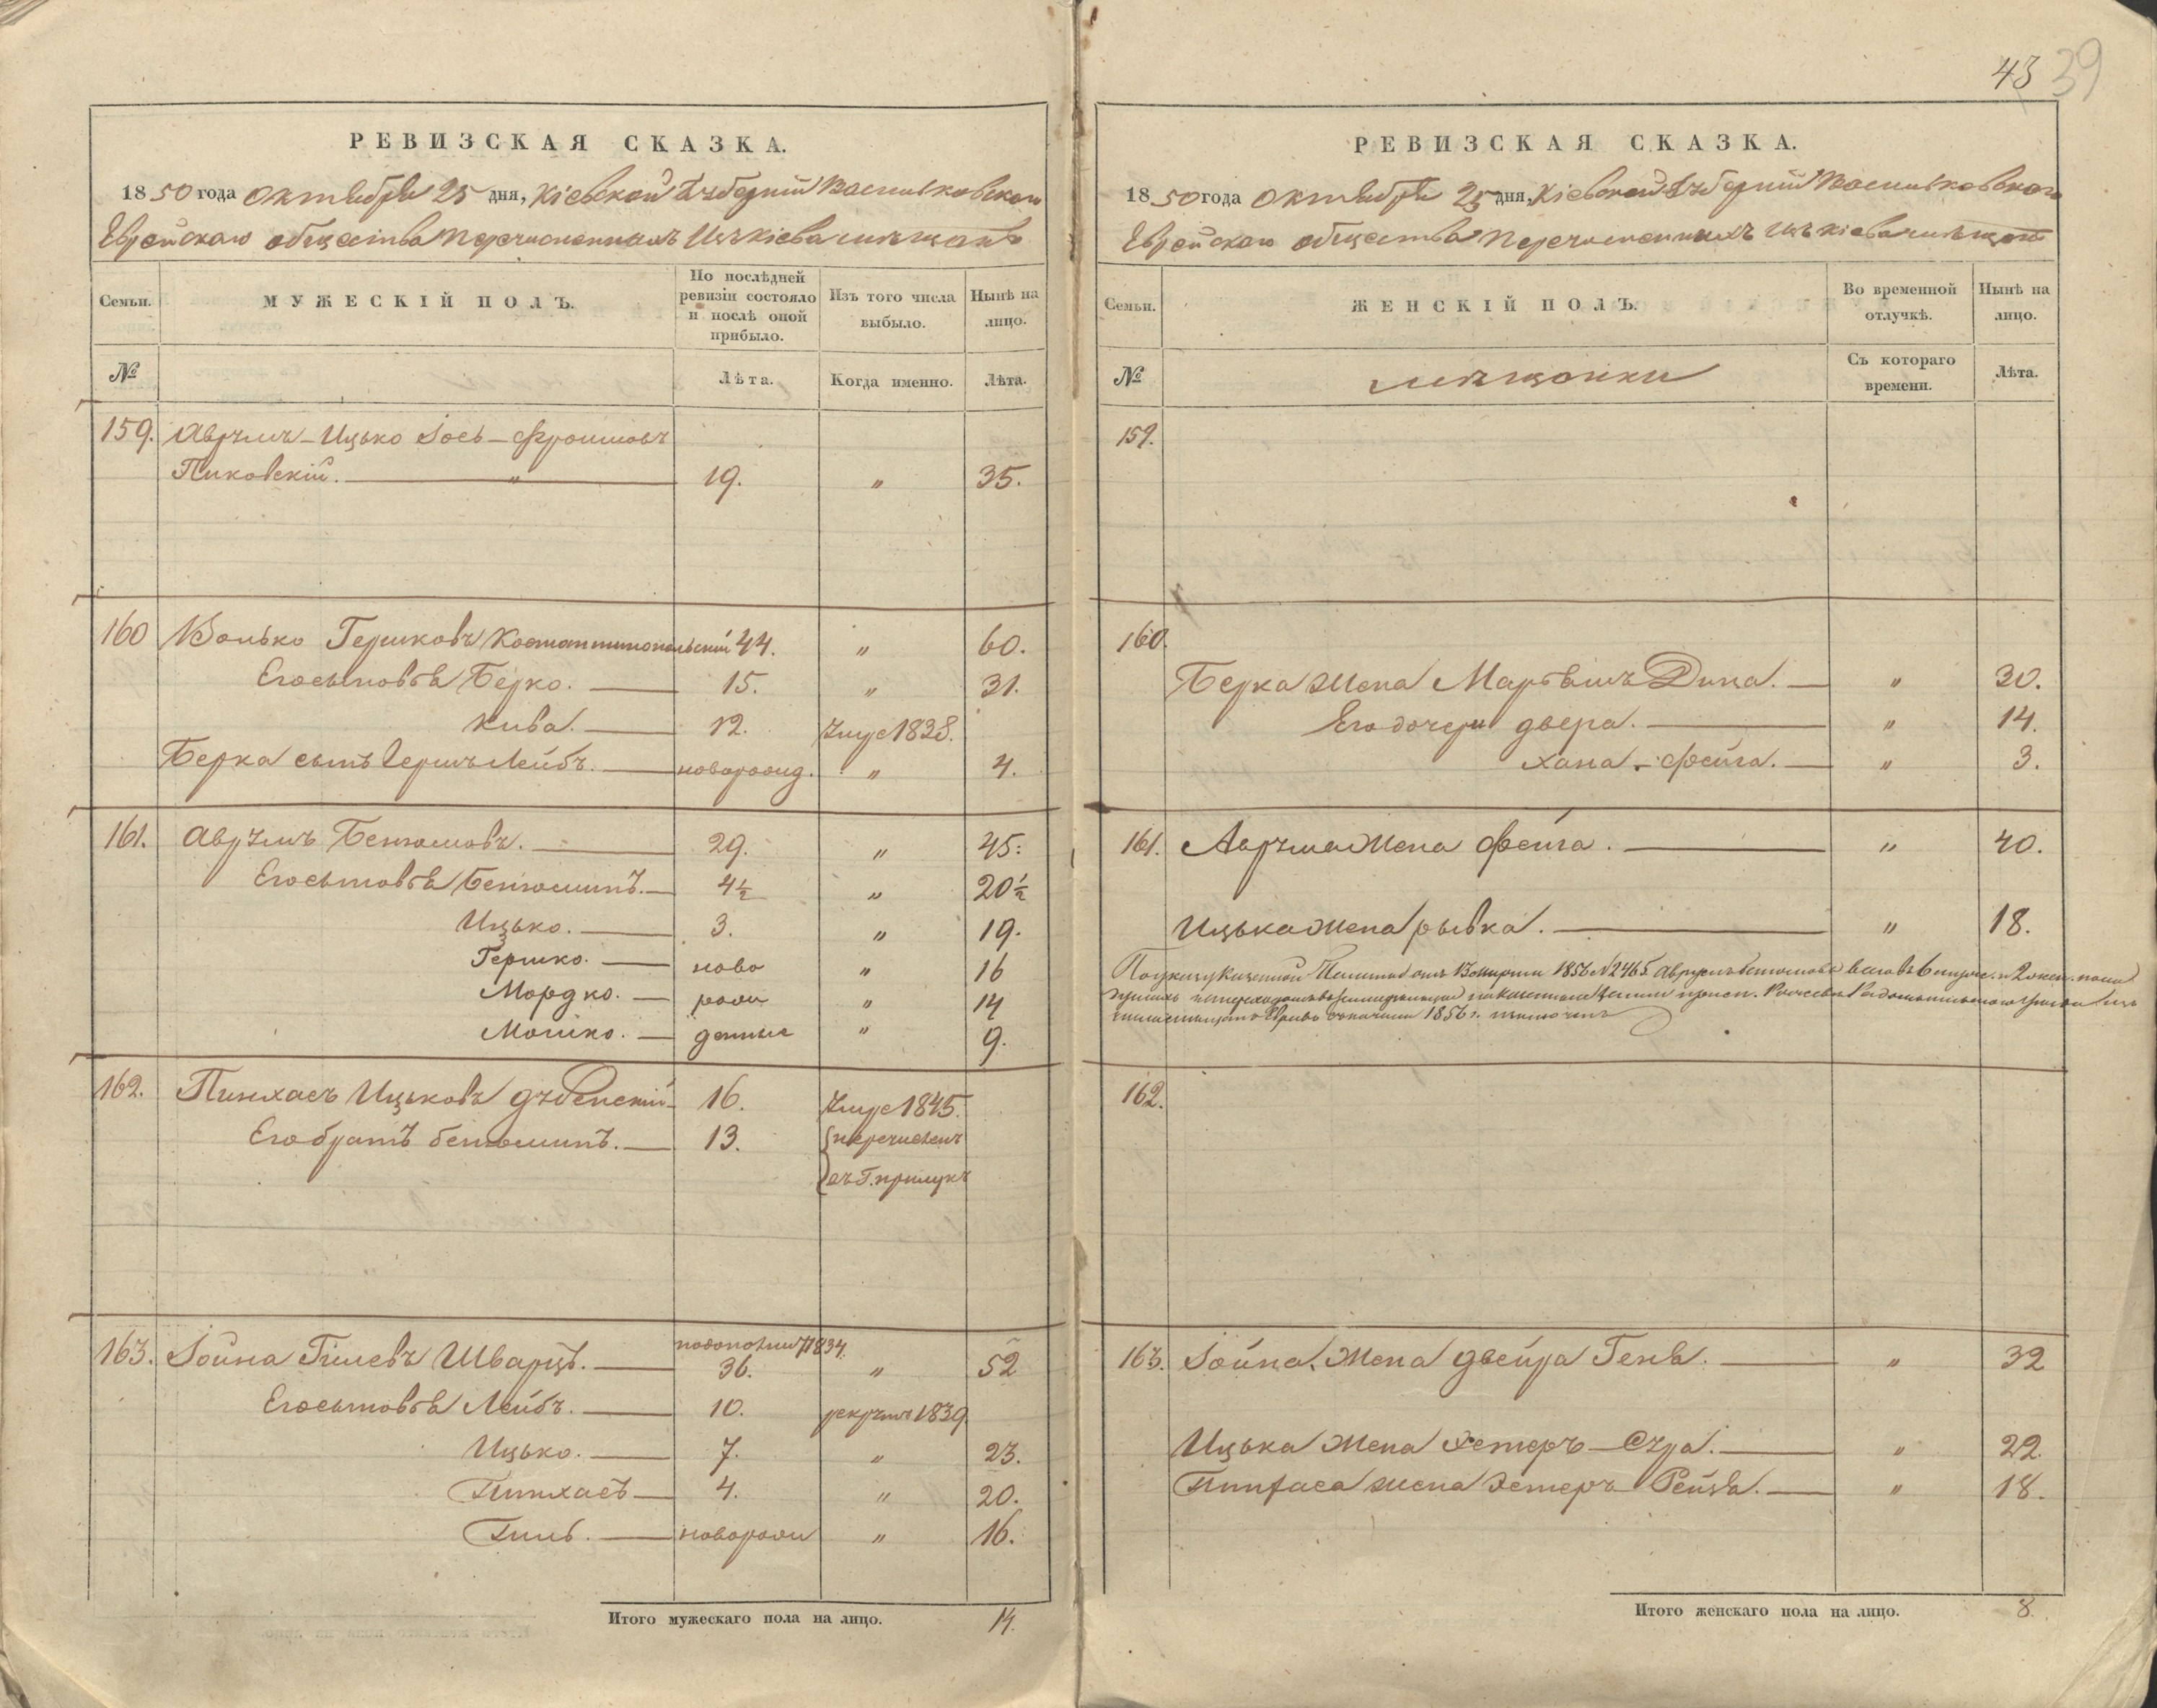 43 39
РЕВИЗСКАЯ СКАЗКА.
1850 года Октября 25 дня, Кіевской Губерніи Васильковскаго
Еврейскаго общества перечисленныхъ изъ Кіева мѣщанъ
Семьи.
МУЖЕСКІЙ ПОЛЪ.
По послѣдней ревизіи состояло и послѣ оной прибыло.
Изъ того числа выбыло.
Нынѣ на лицо.
№
Лѣта.
Когда именно.
Лѣта.
159. Аврумъ-Ицько Іось-Фроимовъ
Пиковскій. " 19. " 35.
160 Волько Гершковъ Константинопольскій 44. " 60.
Его сыновья Берко. 15. " 31.
Кива. 12. Умре 1838.
Берка сынъ Гершъ Лейбъ. новорожд. " 4.
161. Аврумъ Беньомовъ. 29. " 45.
Его сыновья Беньоминъ. 4½ " 20½
Ицько. 3. " 19.
Гершко. ново " 16
Мордко. рож " 14
Мошко. денные " 9.
162. Пинхасъ Ицьковъ Дубенскій 16. Умре 1845.
Его братъ Беньоминъ. 13. перечисленъ
въ Г. Прилукъ
163. Іойна Гилевъ Шварцъ. 1834. 36. " 52
Его сыновья Лейбъ. 10. рекрутъ 1839
Ицько. 7. " 23.
Пинхасъ 4. " 20.
Гиль. новорож " 16.
Итого мужескаго пола на лицо. 14.
РЕВИЗСКАЯ СКАЗКА.
1850 года Октября 25 дня, Кіевской Губерніи Васильковскаго
Еврейскаго общества перечисленныхъ изъ Кіева мѣщанъ
Семьи.
ЖЕНСКІЙ ПОЛЪ.
Во временной отлучкѣ.
Нынѣ на лицо.
№
мѣщанки
Съ котораго времени.
Лѣта.
159.
160.
Берка жена Марьямъ Дина. " 30.
Его дочери Двера. " 14.
Хана-Фейга. " 3.
161. Аврума жена Фейга. " 40.
Ицька жена Рывка. " 18.
По указу Казенной Палаты отъ 13 марта 1856 № 2465 Аврумъ Беньомовъ
1856 г.
162.
163. Іойна жена Двейра Геня. " 32
Ицька жена Эстеръ-Сура. " 22.
Пинхаса жена Эстеръ Рейзя. " 18.
Итого женскаго пола на лицо. 8.